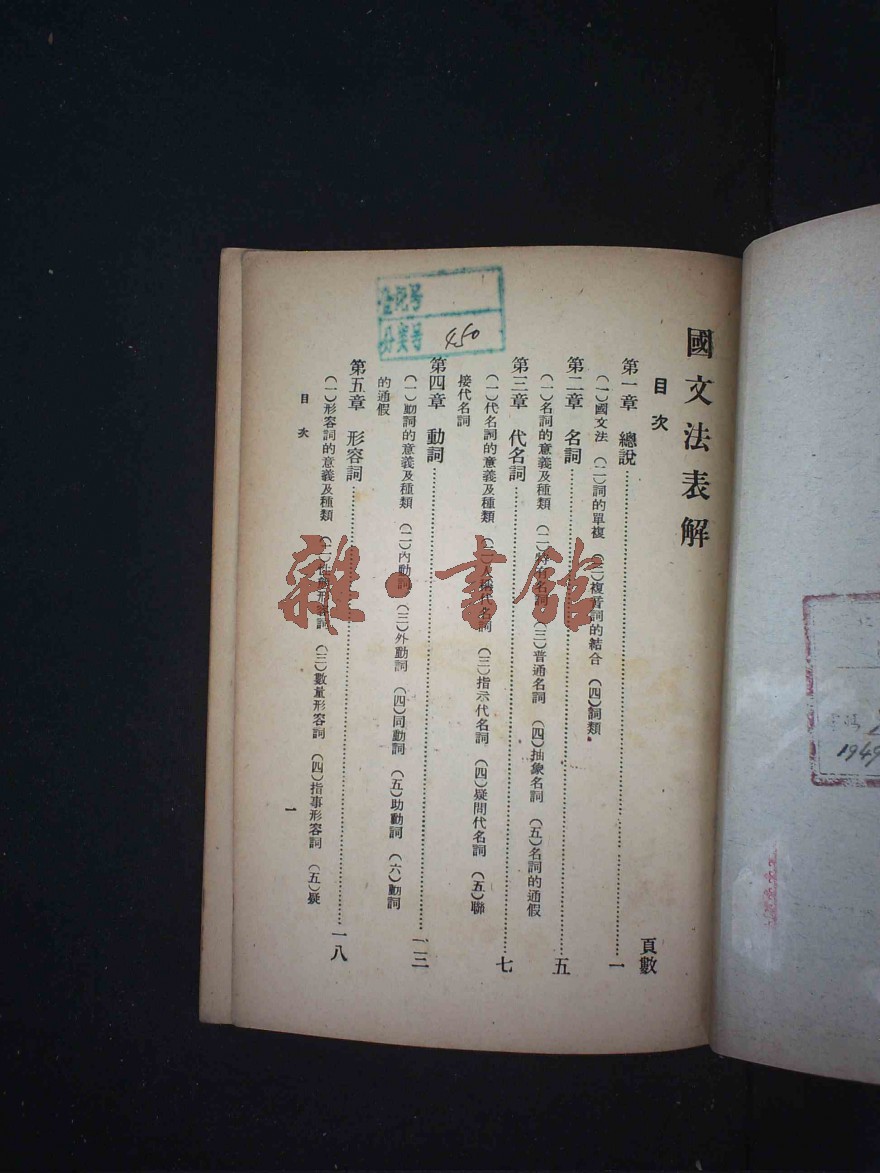 國文法表解
目次
頁數
第一章　總說……一
（一）國文法　（二）詞的單複　（三）複音詞的結合　（四）詞類
第二章　名詞……五
（一）名詞的意義及種類　（二）特有名詞　（三）普通名詞　（四）抽象名詞　（五）名詞的通假
第三章　代名詞……七
（一）代名詞的意義及種類　（二）人稱代名詞　（三）指示代名詞　（四）疑問代名詞　（五）聯
接代名詞
第四章　動詞……一三
（一）動詞的意義及種類　（二）內動詞　（三）外動詞　（四）同動詞　（五）助動詞　（六）動詞
的通假
第五章　形容詞……一八
（一）形容詞的意義及種類　（二）性態形容詞　（三）數量形容詞　（四）指事形容詞　（五）疑
目次
一
登记号
分类号 450
雜·書館
1949